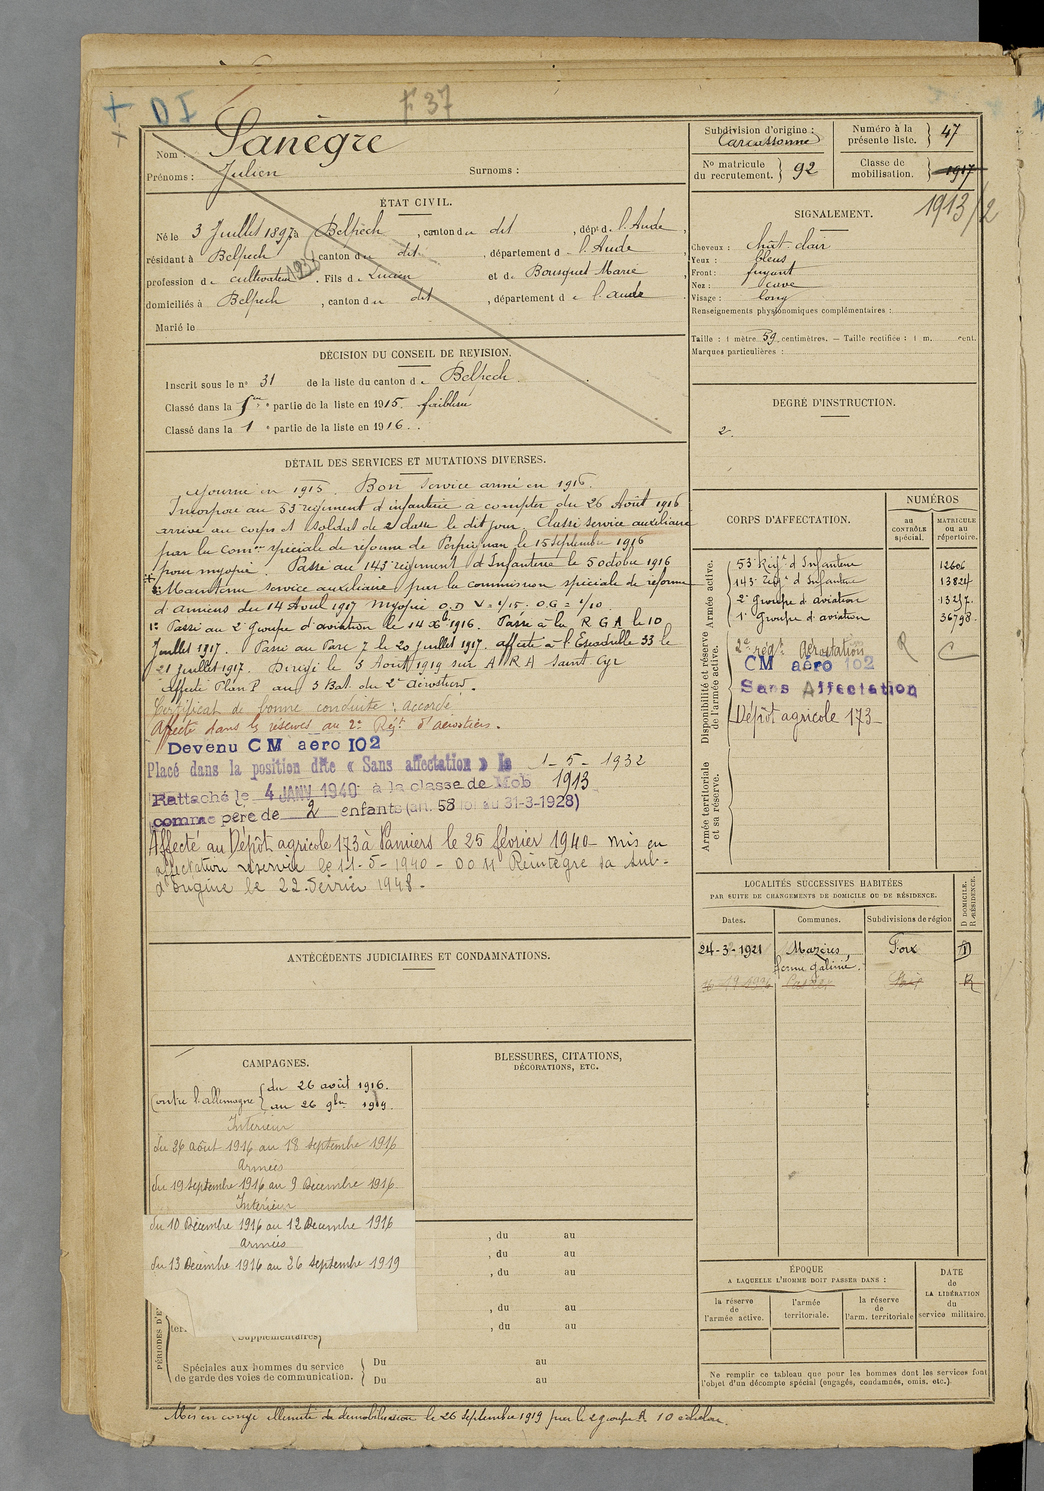 + DI
F 37
Nom : Sanègre
Prénoms : Julien Surnoms :
ÉTAT CIVIL.
Né le 3 Juillet 1897 à Belpech, canton du dit, dépt d. l'Aude,
résidant à Belpech, canton du dit, département d. l'Aude,
profession de cultivateur. Fils de Lucien et de Bousquet Marie
1936
domiciliés à Belpech, canton du dit, département de l'aude
Marié le
DÉCISION DU CONSEIL DE REVISION.
Inscrit sous le n° 31 de la liste du canton de Belpech.
Classé dans la 5me partie de la liste en 1915. faiblesse
Classé dans la 1e partie de la liste en 1916.
DÉTAIL DES SERVICES ET MUTATIONS DIVERSES.
Ajourné en 1915. Bon service armé en 1916.
Incorporé au 53e régiment d'infanterie à compter du 26 Août 1916
arrivé au corps et soldat de 2e classe le dit jour. Classé service auxiliaire
par la Comon spéciale de réforme de Perpignan le 15 septembre 1916
pour myopie. Passé au 143e régiment d'Infanterie le 5 octobre 1916
Maintenu service auxiliaire par la commission spéciale de réforme
d'amiens du 14 Aout 1917 Myopie O.D V = 1/15. O.G = 1/10.
1° Passé au 2e Groupe d'aviation le 14 Xbre 1916. Passé à la R G A le 10
Juillet 1917. Passé au Parc 7 le 20 Juillet 1917. affecté à l'Escadrille 33 le
21 Juillet 1917. Dirigé le 3 Aout 1919 sur A R A Saint Cyr
Affecté Plan P au 3 Bat. du 2e aérostiers.
Certificat de bonne conduite : accordé
Affecté dans les réserves au 2e Régt d'aérostiers.
Devenu CM aéro 102
Placé dans la position dite « Sans affectation » le 1-5-1932
Rattaché le 4 JANV 1940 à la classe de Mob 1913
comme père de 2 enfants (art. 58 loi du 31-3-1928)
Affecté au Dépôt agricole 173 à Pamiers le 25 février 1940 - mis en
affectation réservée le 11-5-1940 - Réintègre sa sub-
d'origine le 22 février 1948.
ANTÉCÉDENTS JUDICIAIRES ET CONDAMNATIONS.
CAMPAGNES.
Contre l'allemagne { du 26 août 1916.
au 26 9bre 1919.
Intérieur
du 26 août 1916 au 18 septembre 1916
Armées
du 19 septembre 1916 au 9 Décembre 1916
Intérieur
du 10 Décembre 1916 au 12 Décembre 1916
Armées
du 13 Décembre 1916 au 26 septembre 1919
BLESSURES, CITATIONS,
DÉCORATIONS, ETC.
, du au
, du au
, du au
, du au
ter. , du au
(Supplémentaires)
PÉRIODES D'E
Spéciales aux hommes du service
de garde des voies de communication. { Du au
Du au
Mis en congé illimité de démobilisation le 26 septembre 1919 par le 2 groupe A 10 echelon.
Subdivision d'origine :
Carcassonne
Numéro à la
présente liste. } 47
N° matricule
du recrutement. } 92
Classe de
mobilisation. } 1917
1913/2
SIGNALEMENT.
Cheveux : chât. clair
Yeux : bleus
Front : fuyant
Nez : cave
Visage : long
Renseignements physionomiques complémentaires :
Taille : 1 mètre 59 centimètres. — Taille rectifiée : 1 m. cent.
Marques particulières :
DEGRÉ D'INSTRUCTION.
2.
CORPS D'AFFECTATION.
NUMÉROS
au
CONTRÔLE
spécial.
MATRICULE
ou au
répertoire.
Armée active.
53e Régt d'Infanterie 12606
143e Régt d'Infanterie 13824
2e Groupe d'aviation 13297
1er Groupe d'aviation 36798
Disponibilité et réserve
de l'armée active.
2e régt Aérostation R C
CM aéro 102
Sans Affectation
Dépôt agricole 173
Armée territoriale
et sa réserve.
LOCALITÉS SUCCESSIVES HABITÉES
PAR SUITE DE CHANGEMENTS DE DOMICILE OU DE RÉSIDENCE.
Dates. Communes. Subdivisions de région
D DOMICILE.
R RÉSIDENCE.
24-3-1921 Mazères Foix D
ferme galinié
R
ÉPOQUE
A LAQUELLE L'HOMME DOIT PASSER DANS :
la réserve
de
l'armée active.
l'armée
territoriale.
la réserve
de
l'arm. territoriale
DATE
de
LA LIBÉRATION
du
service militaire.
Ne remplir ce tableau que pour les hommes dont les services font
l'objet d'un décompte spécial (engagés, condamnés, omis, etc.).